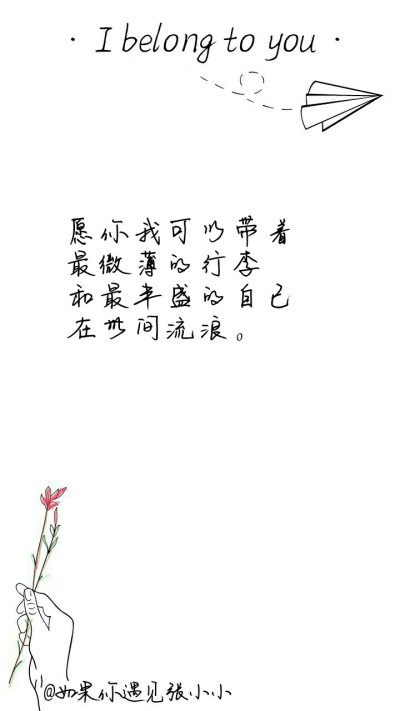 · I belong to you ·
愿你我可以带着
最微薄的行李
和最丰盛的自己
在世间流浪。
@如果你遇见张小小